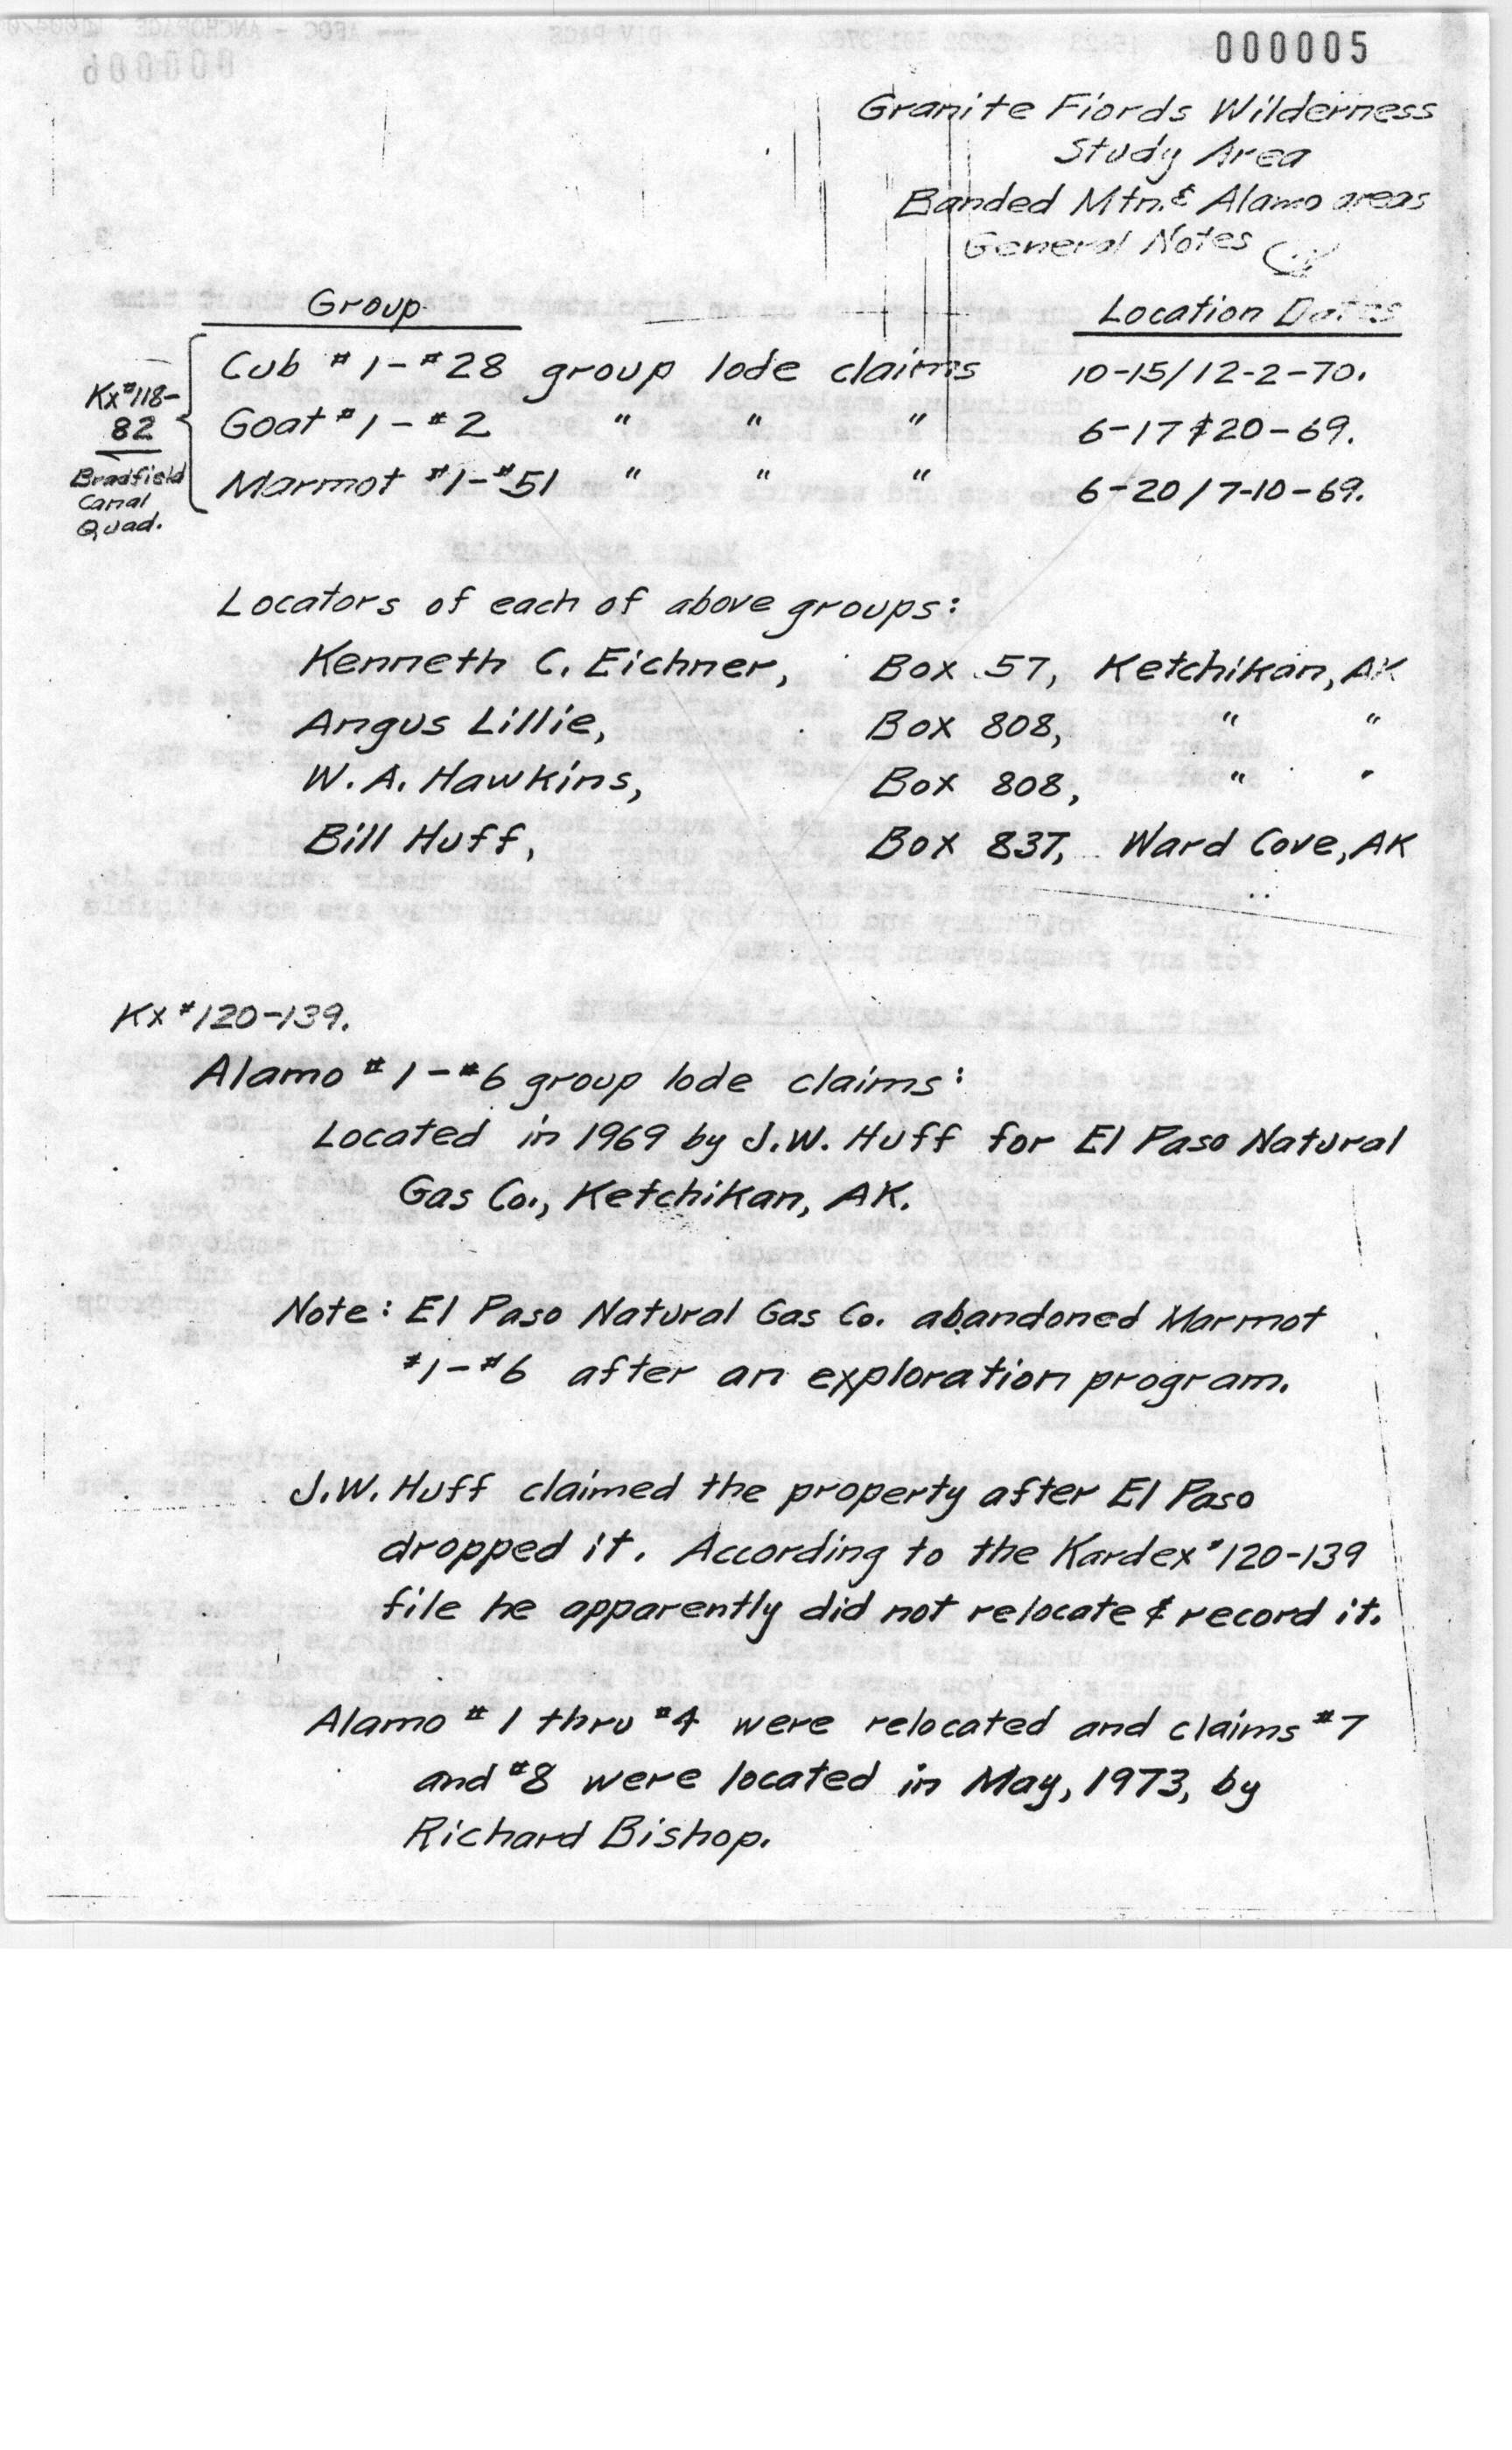 000005
Granite Fiords Wilderness
Study Area
Banded Mtn. & Alamo areas
General Notes
Group
Location Dates
Kx#118-
82
Bradfield
Canal
Quad.
Cub #1-#28 group lode claims 10-15/12-2-70.
Goat #1-#2 " " " 6-17 & 20-69.
Marmot #1-#51 " " " 6-20/7-10-69.
Locators of each of above groups:
Kenneth C. Eichner, Box 57, Ketchikan, AK
Angus Lillie, Box 808, " "
W.A. Hawkins, Box 808, " "
Bill Huff, Box 837, Ward Cove, AK
Kx #120-139.
Alamo #1-#6 group lode claims:
Located in 1969 by J.W. Huff for El Paso Natural
Gas Co., Ketchikan, AK.
Note: El Paso Natural Gas Co. abandoned Marmot
#1-#6 after an exploration program.
J.W. Huff claimed the property after El Paso
dropped it. According to the Kardex #120-139
file he apparently did not relocate & record it.
Alamo #1 thru #4 were relocated and claims #7
and #8 were located in May, 1973, by
Richard Bishop.